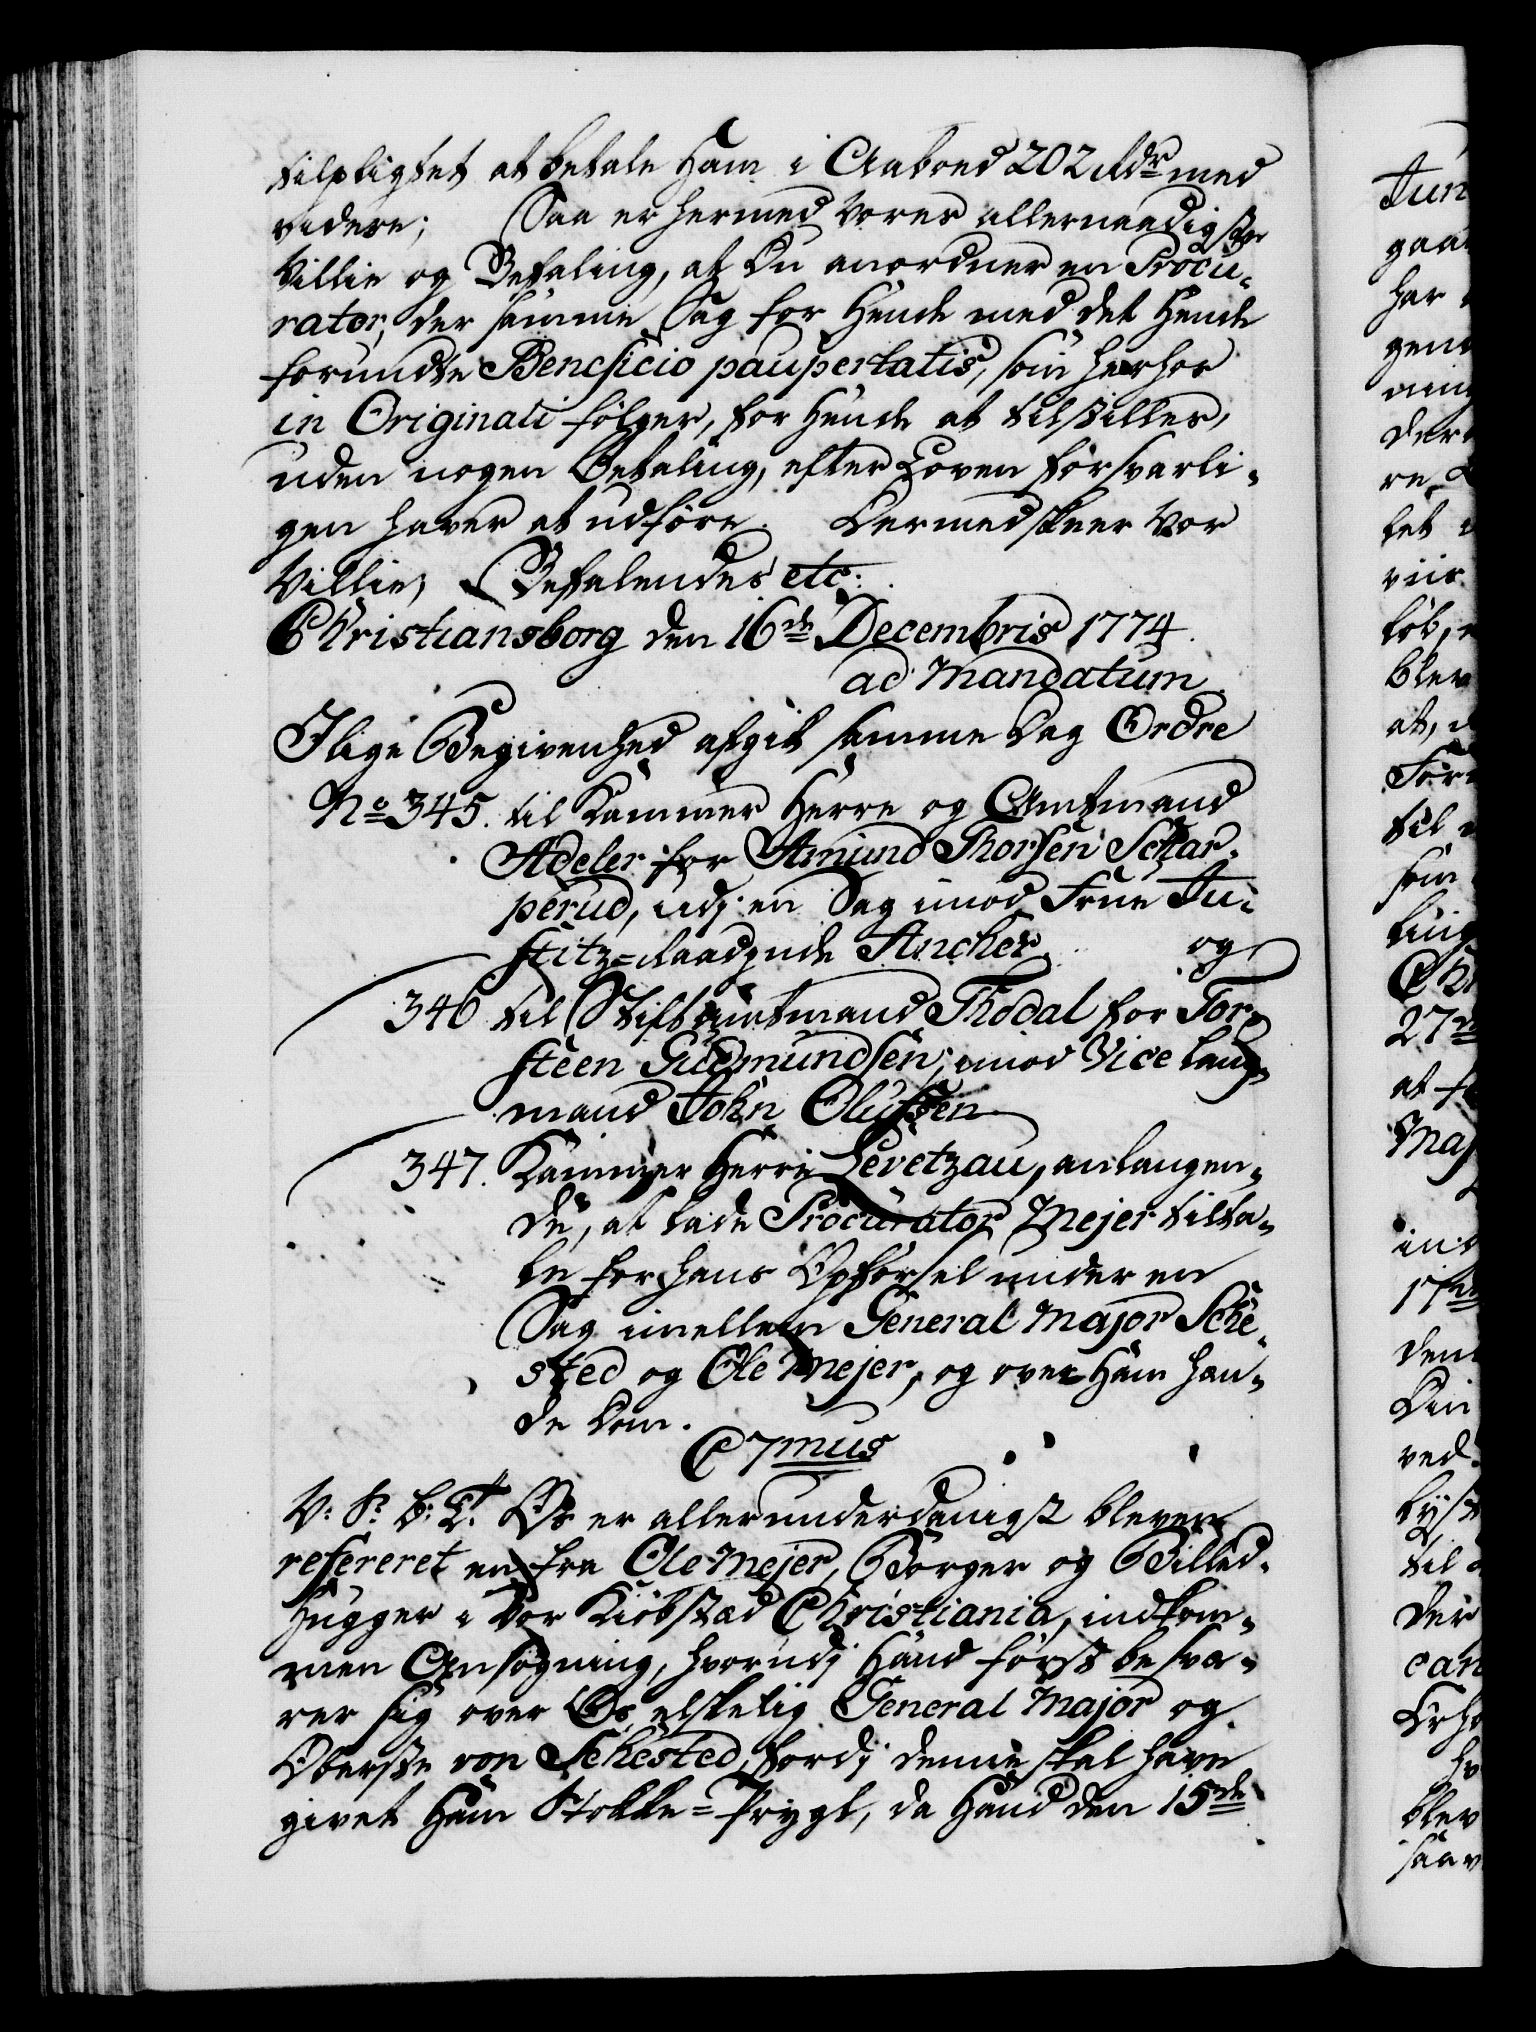 tilpligtet at betale Ham i Aaboed 202 Rdr med
videre; Saa er hermed Vores allernaadigste
Villie og Befaling, at Du anordner en Procu-
rator, der samme Sag for Hende med det Hende
forundte Beneficio paupertatis, som herhos
in Originali følger, for Hende at tilstilles,
uden nogen Betaling, efter Loven forsvarli-
gen haver at udføre. Dermed skeer Vor
Villie, Befalendes etc:
Christiansborg den 16de Decembris 1774.
ad Mandatum
I lige Begivenhed afgik samme Dag Ordre
No 345. til Kammer Herre og Amtmand
Adeler for Amund Thorsen Schar-
perud, udj en Sag imod Frue Ju-
stitz-Raadginde Ancher og
346 til Stiftamtmand Thodal for Tor-
steen Gudmundsen, imod Vice Laug-
mand John Olufsen
347. Kammer Herre Levetzau, anlangen-
de, at lade Procurator Mejer tilta-
le for hans Opførsel under en
Sag imellem General Major Sehe-
sted og Ole Mejer, og over Ham hen-
de Dom.
C 7mus
V: S: B: T. Os er allerunderdanigst bleven
refereret en fra Ole Mejer, Borger og Billed-
hugger i Vor Kiøbstæd Christiania, indkom-
men Ansøgning, hvorudj Hand først besvæ-
rer sig over Os elskelig General Major og
Oberste von Sehested, fordj denne skal have
givet Ham Stokke-Prygl, da Hand den 15de